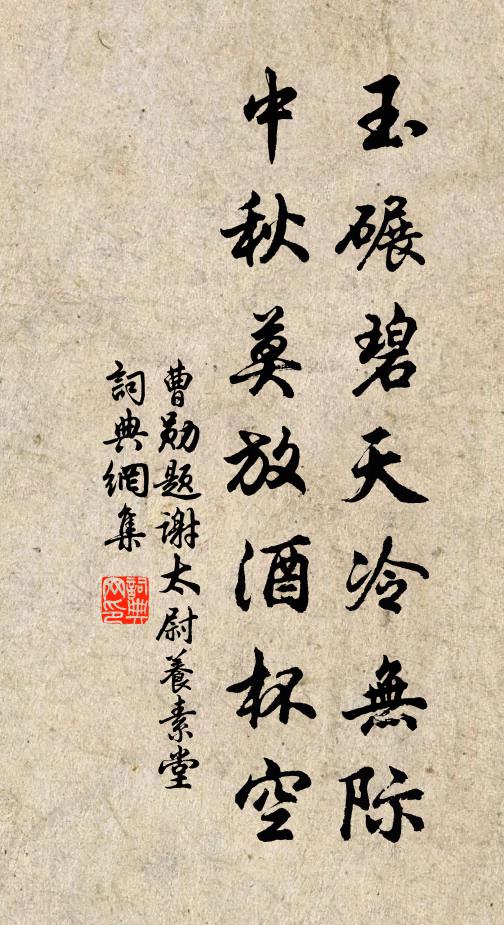 玉碾碧天冷無際
中秋莫放酒杯空
曹勛题谢太尉養素堂
詞典網集
詞典網印